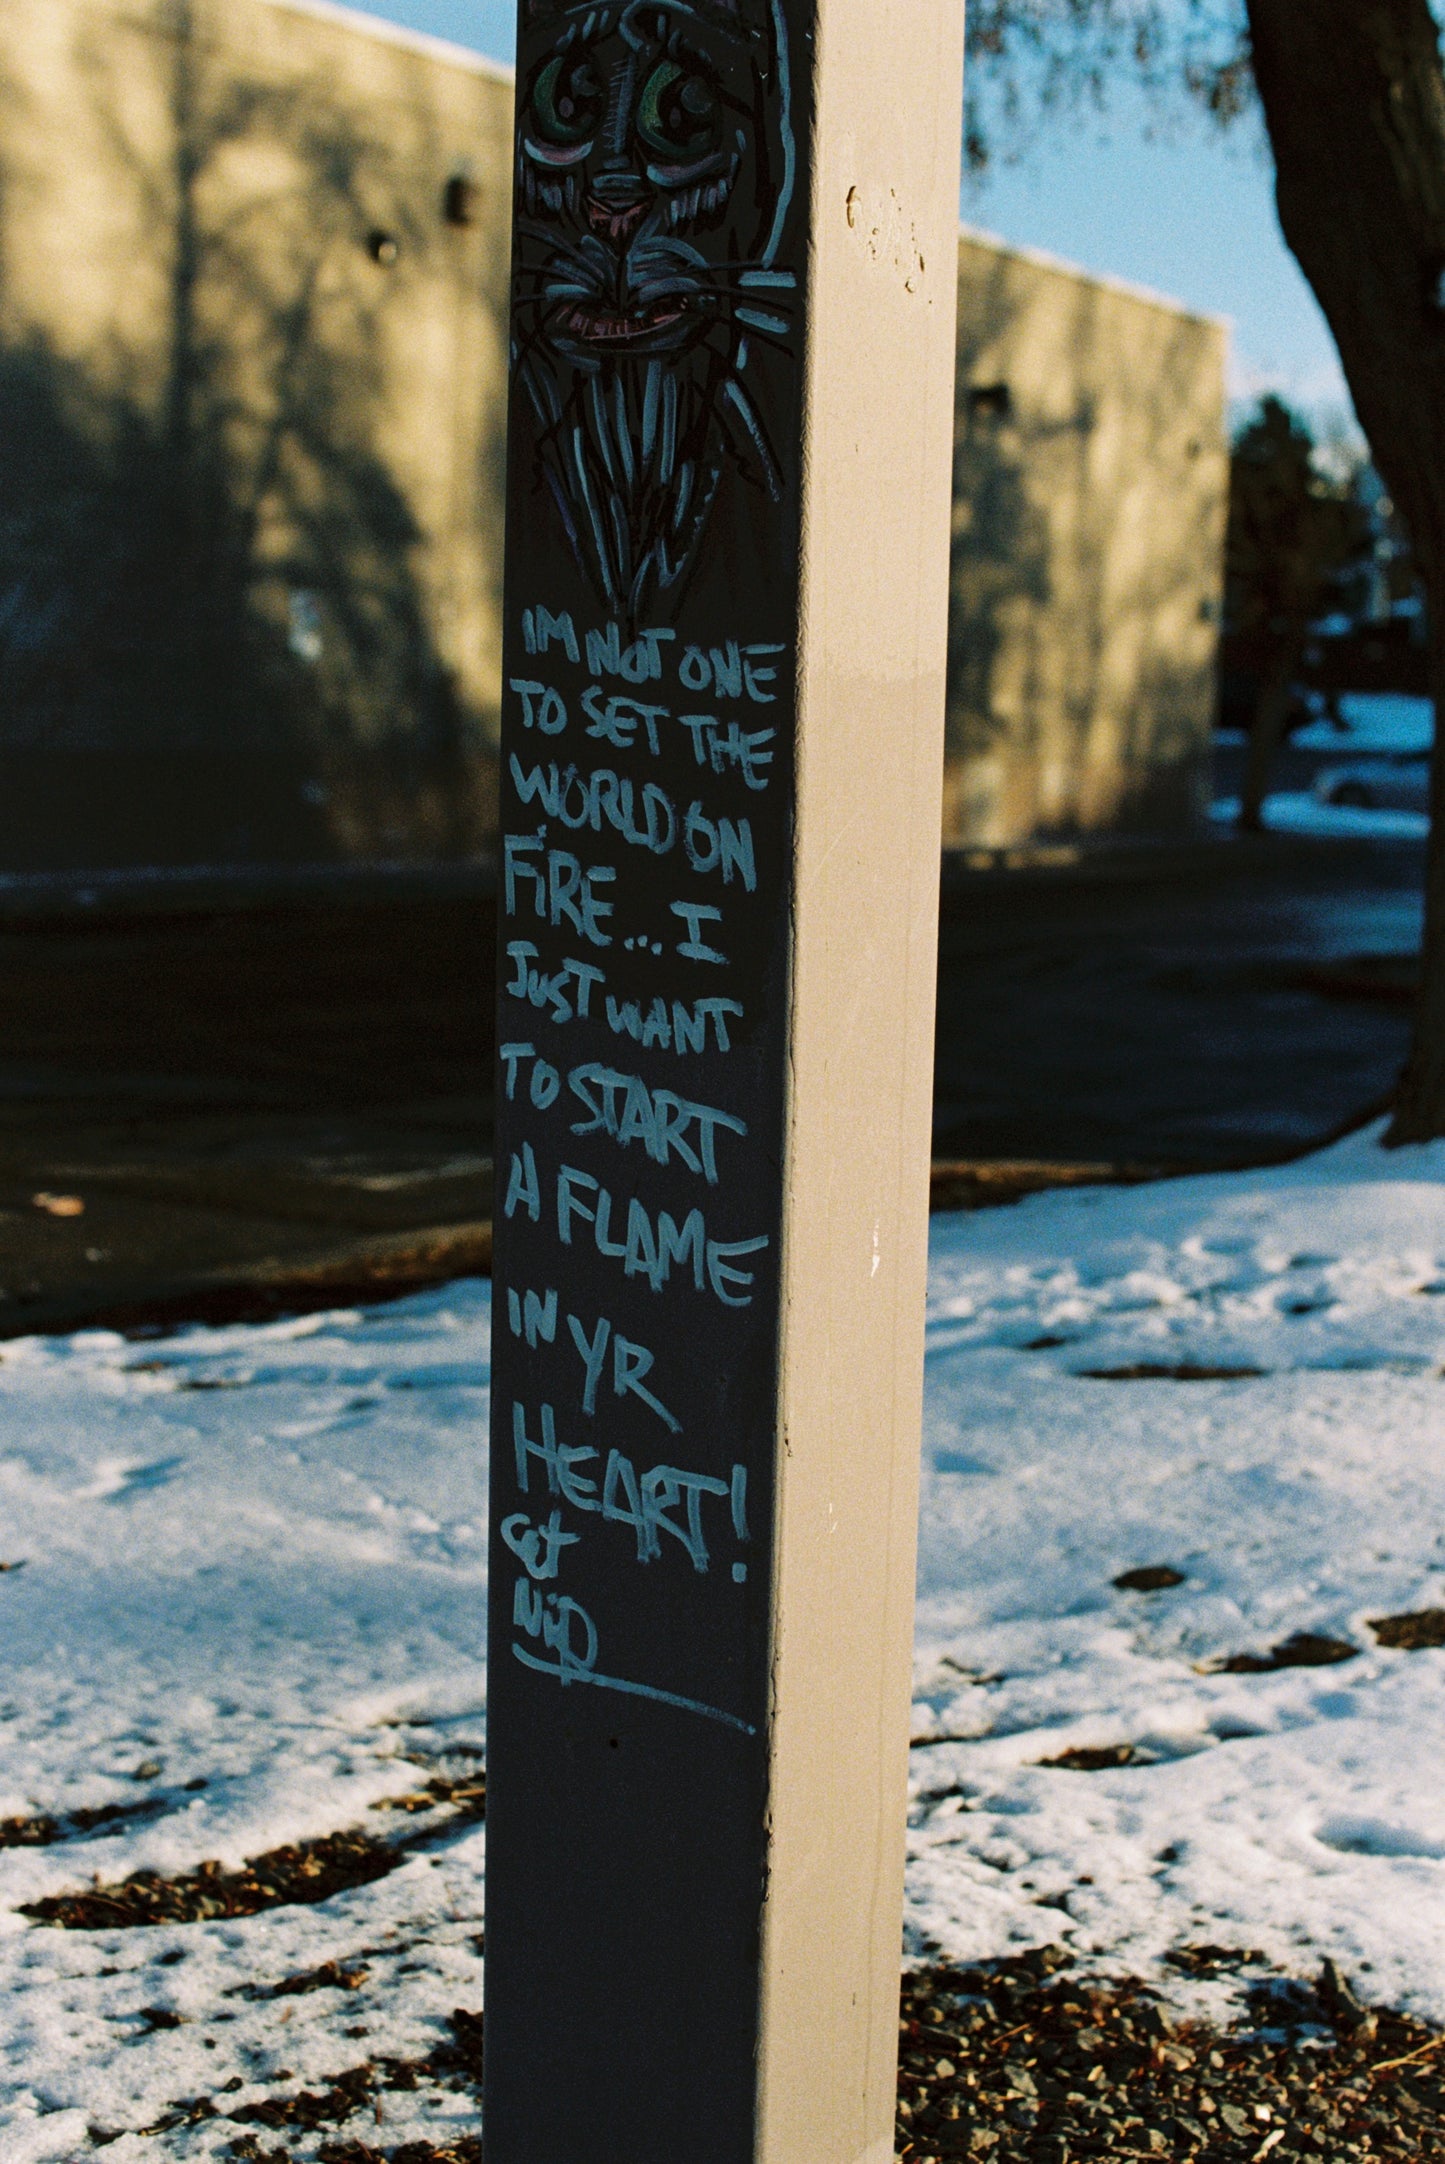 IM NOT ONE
TO SET THE
WORLD ON
FIRE... I
JUST WANT
TO START
A FLAME
IN YR
HEART!
Cat
Nip